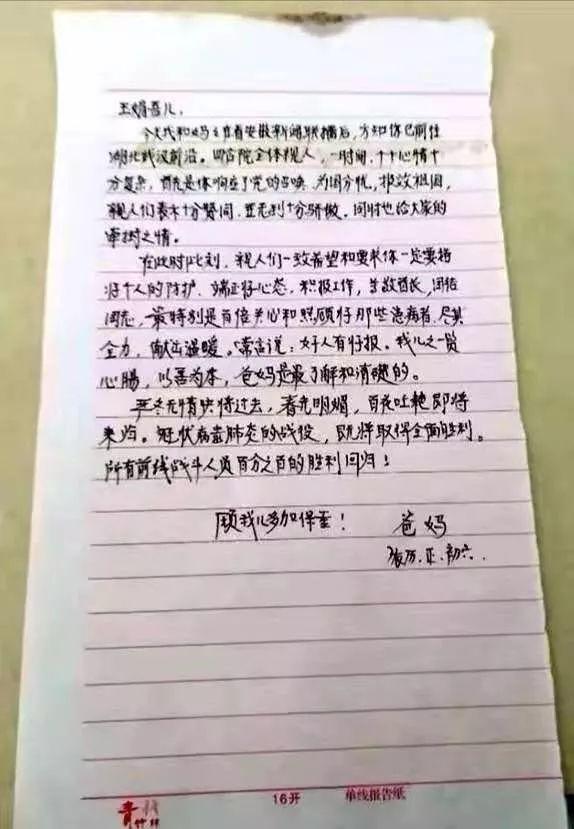 王娟吾儿,
今天我和妈妈在看安徽新闻联播后,方知你已前往
湖北武汉前沿。四合院全体亲人,一时间,十十心情十
分复杂,首先是你响应了党的召唤,为国分忧,报效祖国,
亲人们表示十分赞同,并感到十分骄傲。同时也给大家的
牵挂之情。
在此时此刻,亲人们一致希望和要求你一定要搞
好个人的防护、端正好心态,积极工作,尊敬首长,团结
同志,最特别是百倍关心和照顾好那些患病者,尽其
全力,献出温暖。常言说:好人有好报。我儿之一贯
心腸,以善为本,爸妈是最了解和清楚的。
严冬无情快将过去,春光明媚,百花吐艳即将
来归。冠状病毒肺炎的战役,既将取得全面胜利。
所有前线战斗人员百分之百的胜利回归!
愿我儿多加保重!
爸妈
正.初六.
青竹林
16开
单线报告纸